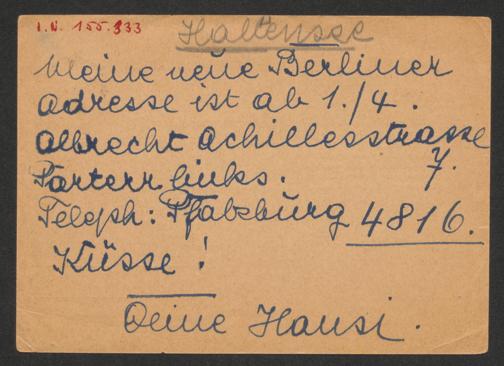 I.N. 155.333
Halensee
Meine neue Berliner
Adresse ist ab 1./4.
Albrecht Achillesstrasse
7.
Parterr links.
Teleph: Pfalzburg 4816.
Küsse!
Deine Hansi.